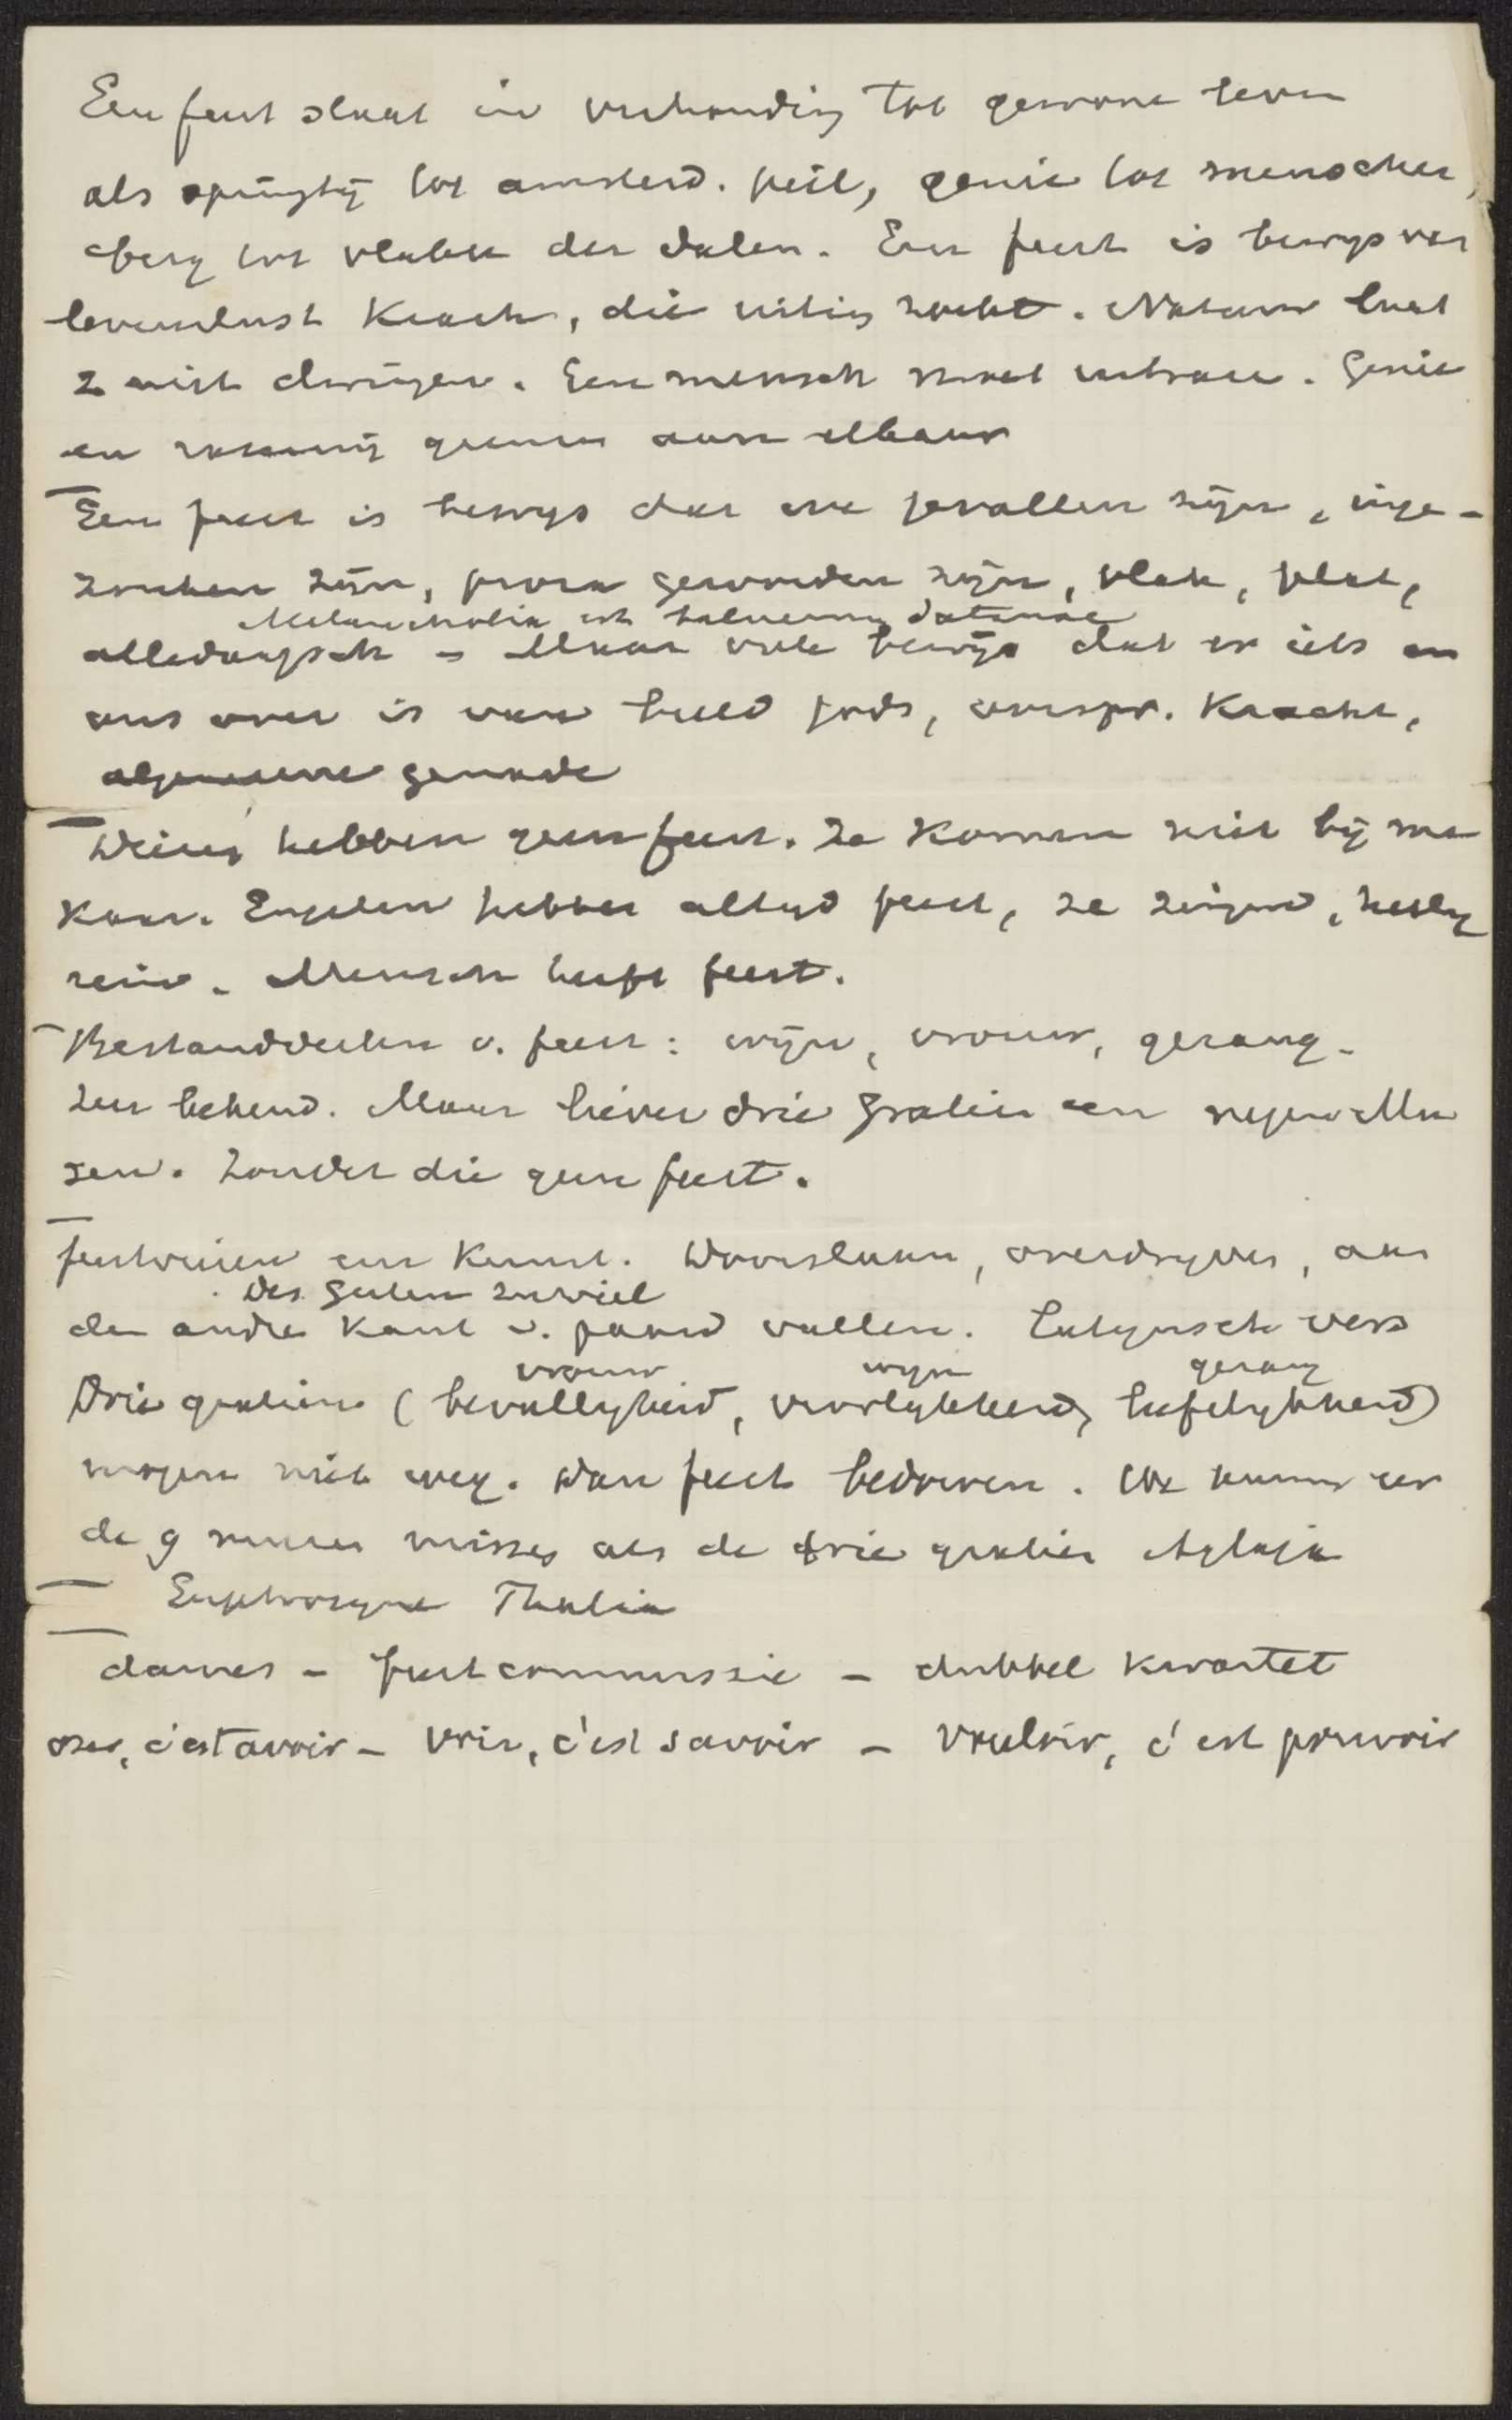 Een feest staat in verhouding tot gewone leven
als springtij tot amsterd. peil, genie tot menschen,
berg tot vlakte der dalen. Een feest is bewys van
levenslust Kracht, die uiting zoekt. Natuur laat
z niet dwingen. Een mensch moet uitrazen. Genie
en razernij grenzen aan elkaar
Een feest is bewys dat we gevallen zijn, inge-
zonken zijn, proza geworden zijn, vlak, plat,
Melancholia est balneum Satanae
alledaagsch – Maar ook bewijs dat er iets in
ons over is van beeld Gods, oorspr. Kracht,
algemeene genade
hebben geen feest. Ze komen niet bij me
kaar. Engelen hebben altyd feest, ze zingend, heilig
rein. Mensch heeft feest.
Bestanddeelen v. feest: wijn, vrouw, gezang.
Zeer bekend. Maar liever drie Gratiën en negen Mu
zen. Zonder die geen feest.
feestvieren een Kunst. Doorslaan, overdryven, aan
Des Guten zuviel
de andre Kant v. paard vallen. Latynsch vers
vrouw wyn gezang
Drie gratiën (bevallyheid, vroolykheid, liefelykheid)
mogen niet weg. Dan feest bedorven. We kunnen eer
de 9 muzen missen als de drie gratiën Aglaja
Euphrosyne Thalia
dames – feestcommissie – dubbel kwartet
oser, c'est avoir – voir, c'est savoir – Vouloir, c'est pouvoir